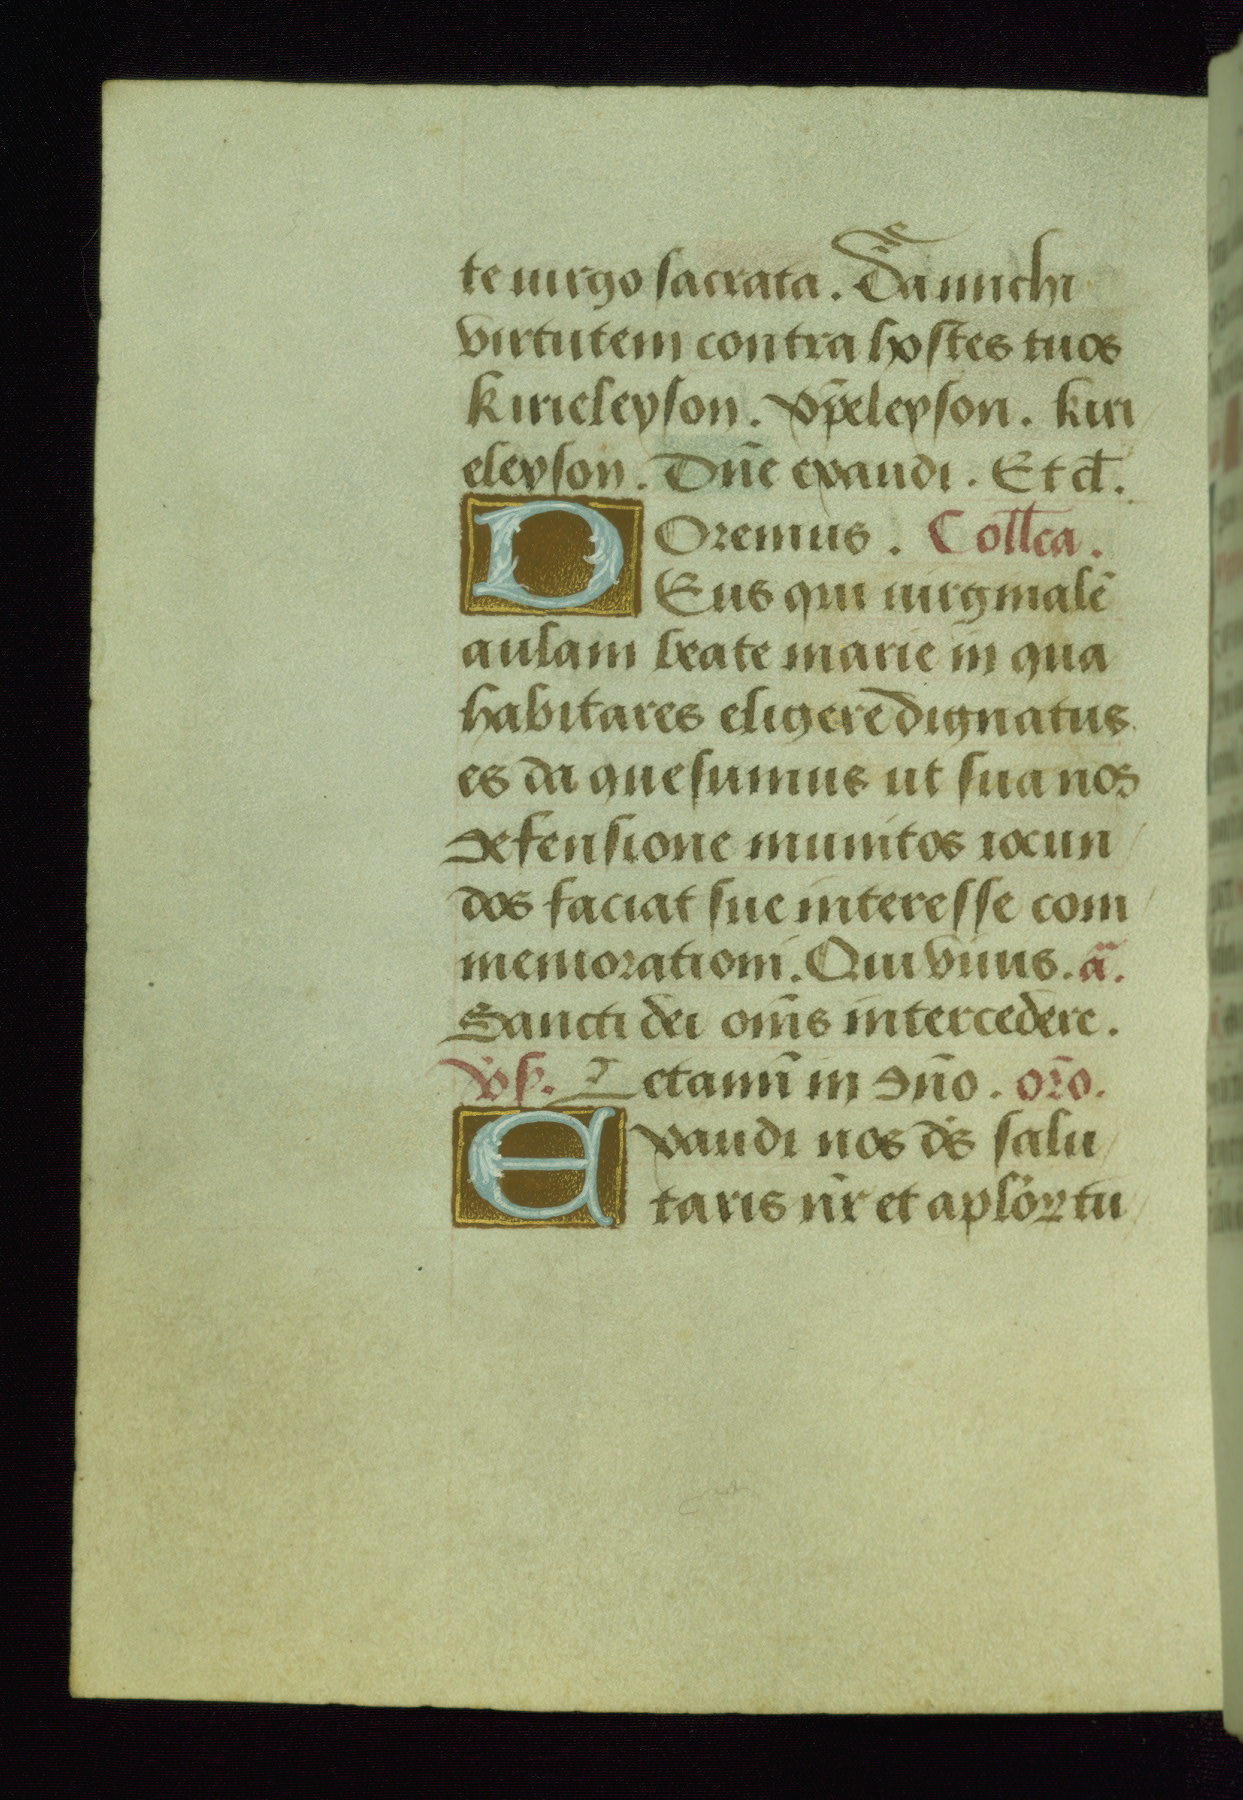 te uirgo sacrata. Da michi
virtutem contra hostes tuos
kirieleyson. xp̄eleyson. kiri
eleyson. Dn̄e exaudi. Et cł.
Oremus. Coll̄ca.
DEus qui uirginalē
aulam beate marie in qua
habitares eligere dignatus
es da quesumus ut sua nos
defensione munitos iocun
dos faciat sue interesse com
memorationi. Qui viuis. an̄.
Sancti dei om̄s intercedere.
Letamī in dn̄o. or̄o.
Exaudi nos ds̄ salu
taris nr̄ et aplōꝝ tu